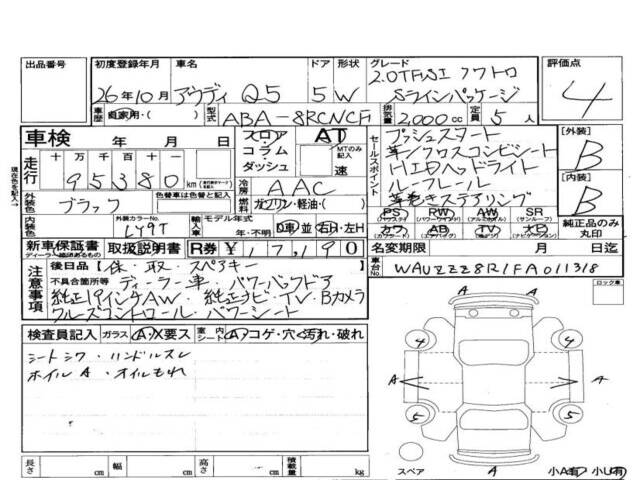 出品番号 初度登録年月 車名 ドア 形状 グレード 評価点
26年10月 アウディ Q5 5 W 2.0TFSI クワトロ Sラインパッケージ 4
車歴 自家用・( ) 型式 ABA-8RCNCF 排気量 2,000cc 定員 5人
車検 年 月 日 フロア コラム・ダッシュ AT MTのみ記入 速
セールスポイント プッシュスタート [外装]
走行 十万千百十一 95380 km
革/クロスコンビシート B
HIDヘッドライト
冷房 AAC
ルーフレール [内装]
外装色 ブラック 色替車は色替と記入 燃料 ガソリン・軽油・( )
革巻きステアリング B
内装色 外装カラーNo. LY9T 輸入車 モデル年式 年・不明 D車・並 右H・左H
PS RW AW SR
カワ AB TV ナビ 純正品のみ丸印
新車保証書 取扱説明書 R券 ¥17,190 名変期限 月 日迄
ディーラー継続のあるもの
注意事項 後日品 保・取・スペアキー 車台No. WAUZZZ8R1FA011318
不具合箇所等 ディーラー車・パワーバックドア
純正19インチAW・純正ナビ・TV・Bカメラ
クルーズコントロール・パワーシート
現在色を記入→
ロック車
検査員記入 ガラス A・X要ス 室内シート A・コゲ・穴・汚れ・破れ
シートシワ・ハンドルスレ
ホイルA・オイルモレ
A
4 4
A A A
5 5
長さ cm 幅 cm 高さ cm 積載量 kg
スペア A 小A有 小U有